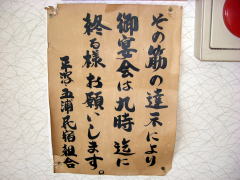 その筋の達示により
御宴会は九時迄に
終る様お願いします。
平潟五浦民宿組合